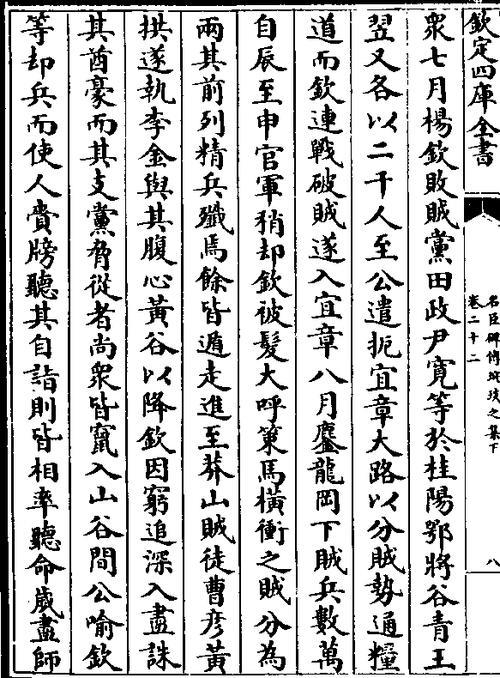 欽定四庫全書
名臣碑傳琬琰之集下
卷二十二
八
衆七月楊欽敗賊黨田政尹寛等於桂陽鄂將谷青王
翌又各以二千人至公遣扼宜章大路以分賊勢通糧
道而欽連戰破賊遂入宜章八月鏖龍岡下賊兵數萬
自辰至申官軍稍却欽被髮大呼策馬橫衝之賊分為
兩其前列精兵殲焉餘皆遁走進至莽山賊徒曹彦黄
拱遂執李金與其腹心黄谷以降欽因窮追深入盡誅
其酋豪而其支黨脅從者尚衆皆竄入山谷間公喻欽
等却兵而使人賫牓聽其自詣則皆相率聽命歲盡師